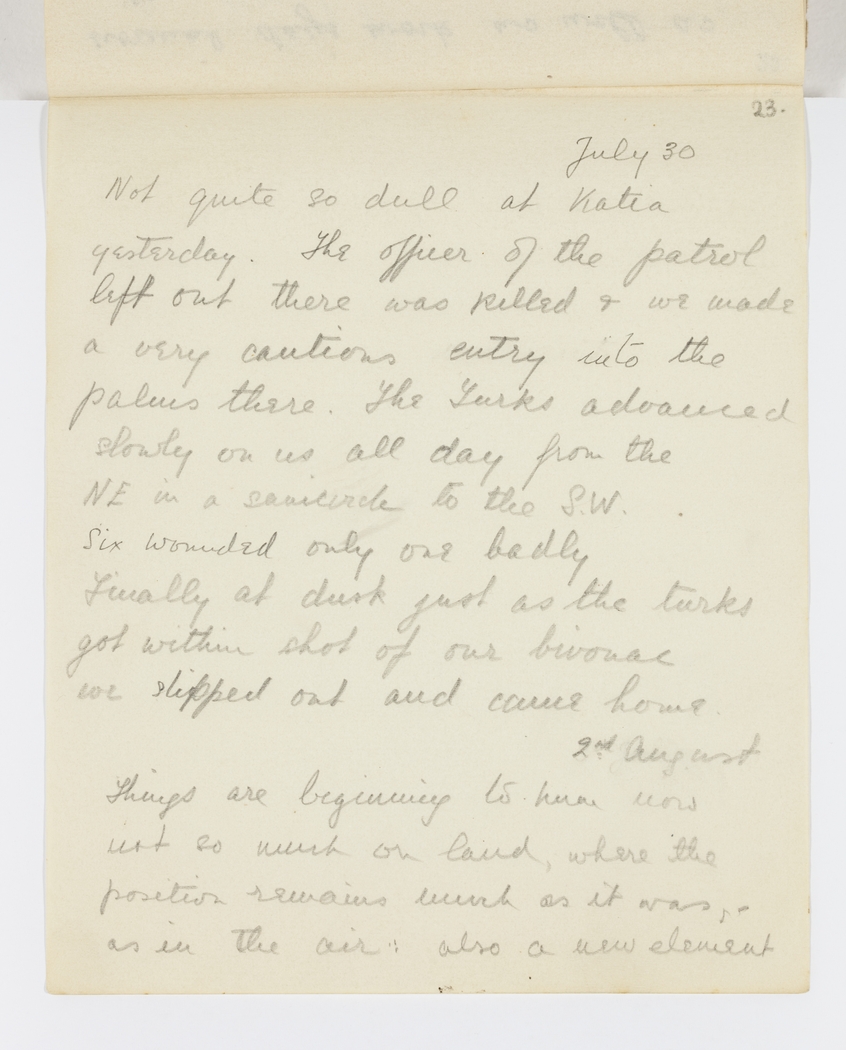 23.
July 30
Not quite so dull at Katia
yesterday. The officer of the patrol
left out there was killed & we made
a very cautious entry into the
palms there. The Turks advanced
slowly on us all day from the
NE in a semicircle to the S.W.
Six wounded only one badly
Finally at dusk just as the turks
got within shot of our bivouac
we slipped out and came home.
2nd August
Things are beginning to hum now
not so much on land, where the
position remains much as it was,-
as in the air: also a new element